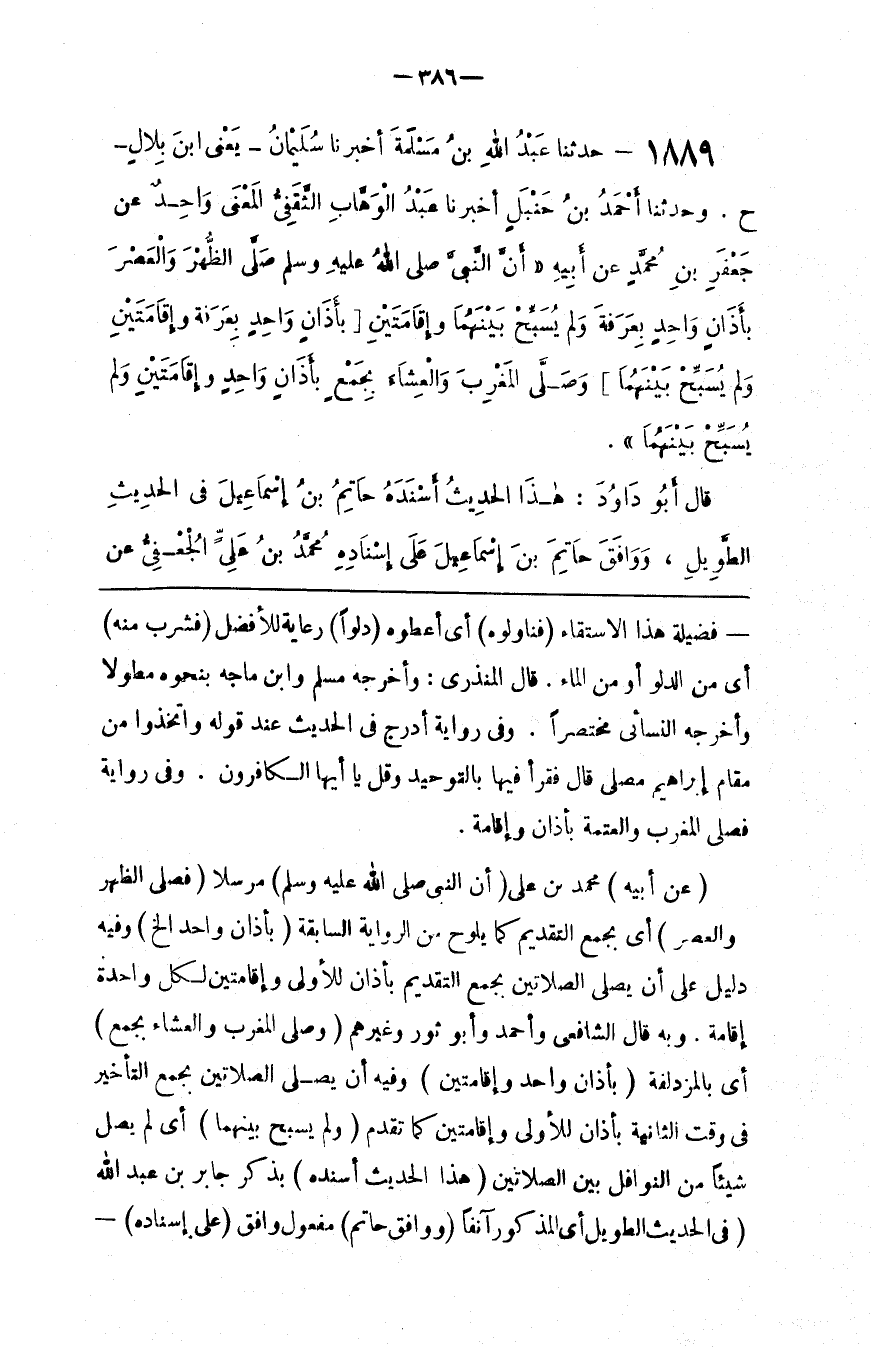 —٣٨٦—
١٨٨٩ — حدثنا عَبْدُ اللهِ بنُ مَسْلَمَةَ أخبرنا سُلَيْمَانُ - يَعْنِى ابنَ بِلَالٍ-
ح . وحدثنا أَحْمَدُ بنُ حَنْبَلٍ أخبرنا عَبْدُ الْوَهَّابِ الثَّقَفِىُّ المَعْنَى وَاحِـدٌ عن
جَعْفَرِ بنِ مُحمَّدٍ عن أَبِيهِ « أَنَّ النَّبىَّ صلى اللهُ عليهِ وسلم صَلَّى الظُّهْرَ وَالْعَصْرَ
بأَذَانٍ وَاحِدٍ بِعَرَفَةَ وَلم يُسَبِّحْ بَيْنَهُمَا وإقَامَتَيْنِ [ بأَذَانٍ وَاحِدٍ بِعَرَفَة وإقَامَتَيْنِ
وَلم يُسَبِّحْ بَيْنَهُمَا ] وَصَـلَّى المَغْرِبَ وَالْعِشَاءَ بِجَمْعٍ بأَذَانٍ وَاحِدٍ وإقَامَتَيْنِ وَلم
يُسَبِّحْ بَيْنَهُمَا » .
قال أَبُو دَاوُدَ : هٰـذَا الحديثُ أَسْنَدَهُ حَاتِمُ بنُ إسْمَاعِيلَ فى الحدِيثِ
الطَّوِيلِ ، وَوَافَقَ حَاتِمَ بنَ إسْمَاعِيلَ عَلَى إسْنَادِهِ مُحمَّدُ بنُ عَلِىٍّ الْجُعْـفِىُّ عن
— فضيلة هذا الاستقاء (فناولوه) أى أعطوه (دلواً) رعاية للأفضل (فشرب منه)
أى من الدلو أو من الماء . قال المنذرى : وأخرجه مسلم وابن ماجه بنحوه مطولا
وأخرجه النسائى مختصراً . وفى رواية أدرج فى الحديث عند قوله واتخذوا من
مقام إبراهيم مصلى قال فقرأ فيها بالتوحيد وقل يا أيها الـكافرون . وفى رواية
فصلى المغرب والعتمة بأذان وإقامة .
( عن أبيه ) محمد بن على( أن النبى صلى الله عليه وسلم) مرسلا ( فصلى الظهر
والعصر ) أى بجمع التقديم كما يلوح من الرواية السابقة ( بأذان واحد الخ ) وفيه
دليل على أن يصلى الصلاتين بجمع التقديم بأذان للأولى وإقامتين لـكل واحدة
إقامة . وبه قال الشافعى وأحمد وأبو ثور وغيرهم ( وصلى المغرب والعشاء بجمع )
أى بالمزدلفة ( بأذان واحد وإقامتين ) وفيه أن يصـلى الصلاتين بجمع التأخير
فى وقت الثانية بأذان للأولى وإقامتين كما تقدم ( ولم يسبح بينهما ) أى لم يصل
شيئاً من النوافل بين الصلاتين ( هذا الحديث أسنده ) بذكر جابر بن عبد الله
( فى الحديث الطويل أى المذكور آنفاً (ووافق حاتم) مفعول وافق (على إسناده) —